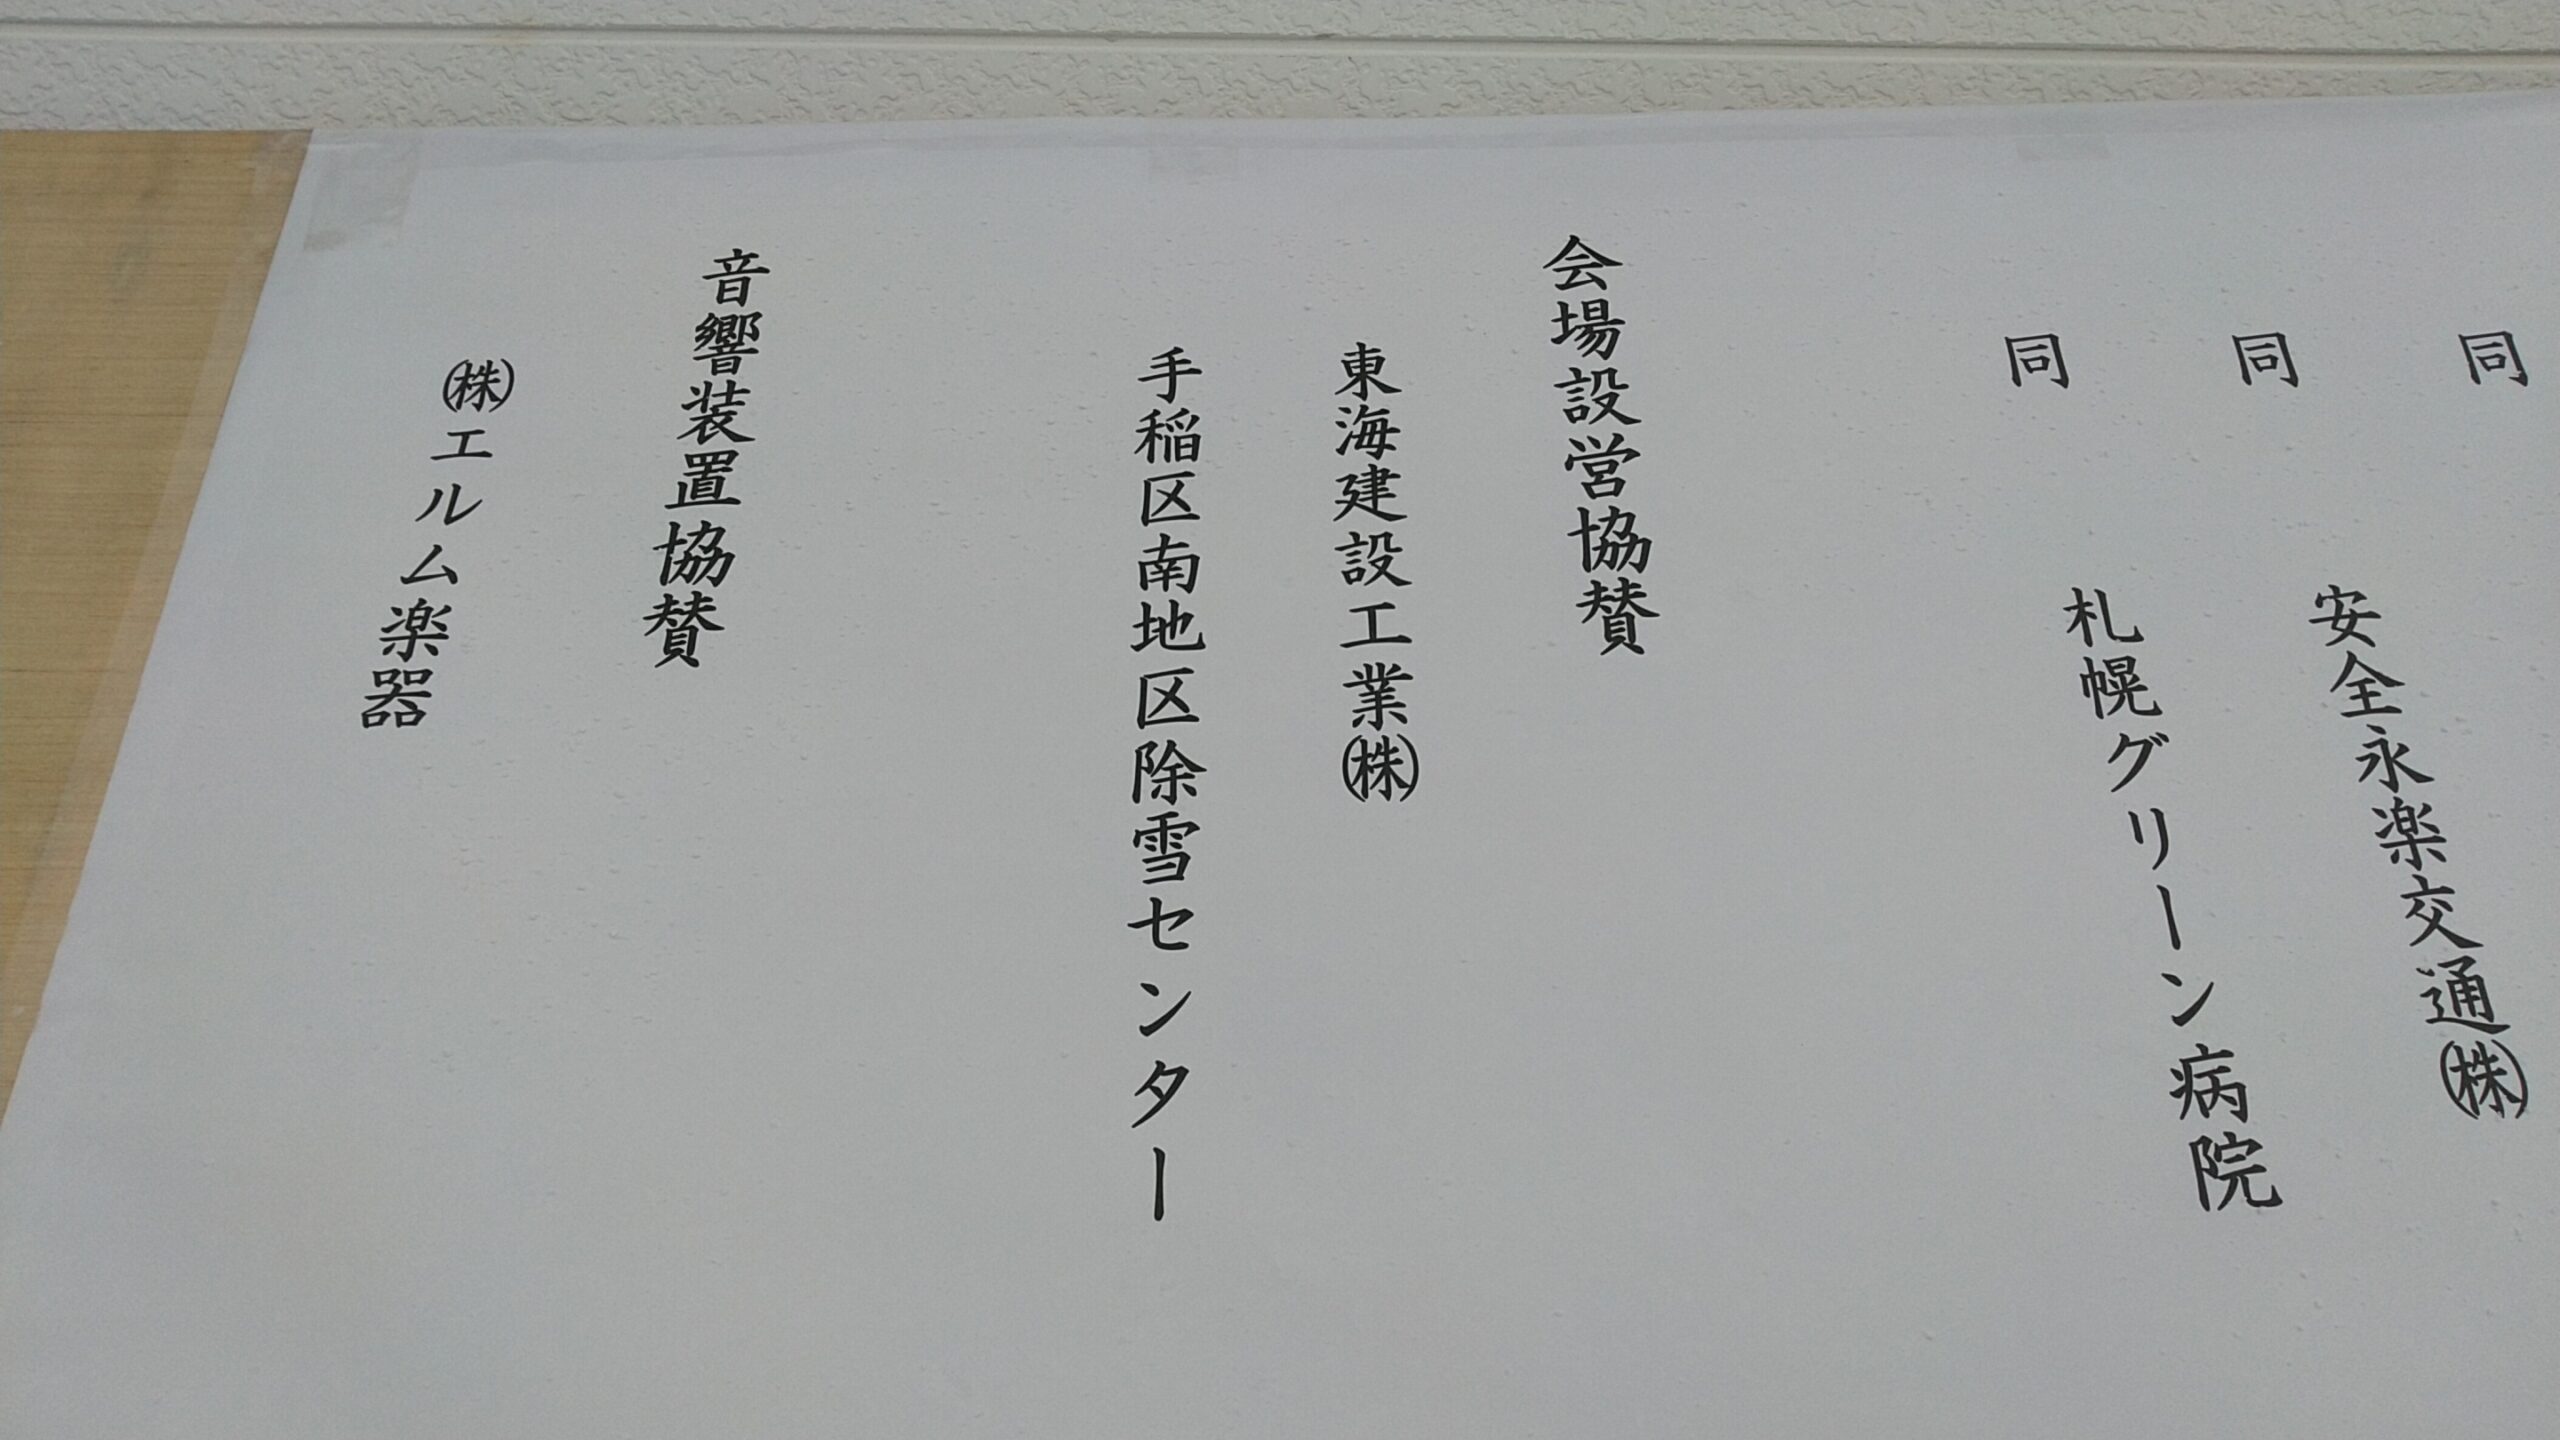 同
同　安全永楽交通㈱
同　札幌グリーン病院
会場設営協賛
東海建設工業㈱
手稲区南地区除雪センター
音響装置協賛
㈱エルム楽器